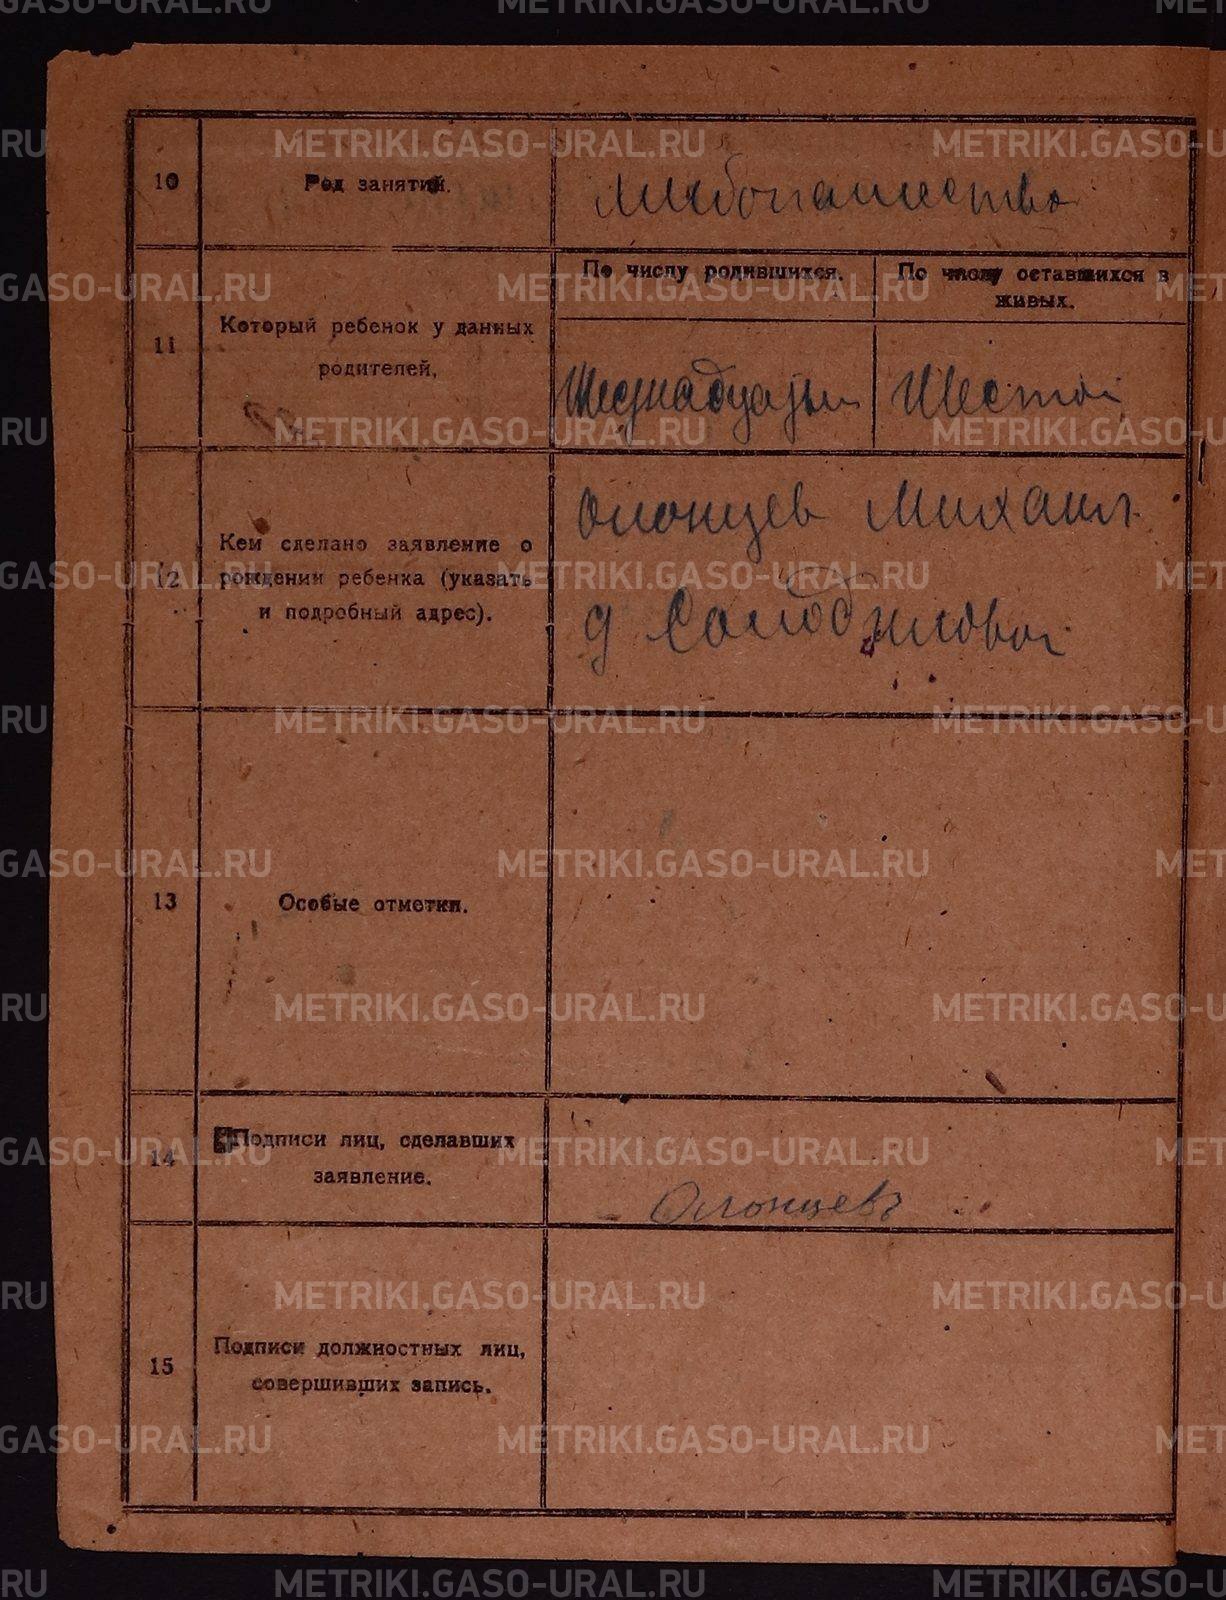 10
Род занятий.
Хлебопашество
11
Который ребенок у данных
родителей,
По числу родившихся.
По числу оставшихся в
живых.
Шеснадцатый
Шестой
12
Кем сделано заявление о
рождении ребенка (указать
и подробный адрес).
Олонцев Михаил
д
13
Особые отметки.
14
Подписи лиц, сделавших
заявление.
Олонцевъ
15
Подписи должностных лиц,
совершивших запись.
METRIKI.GASO-URAL.RU